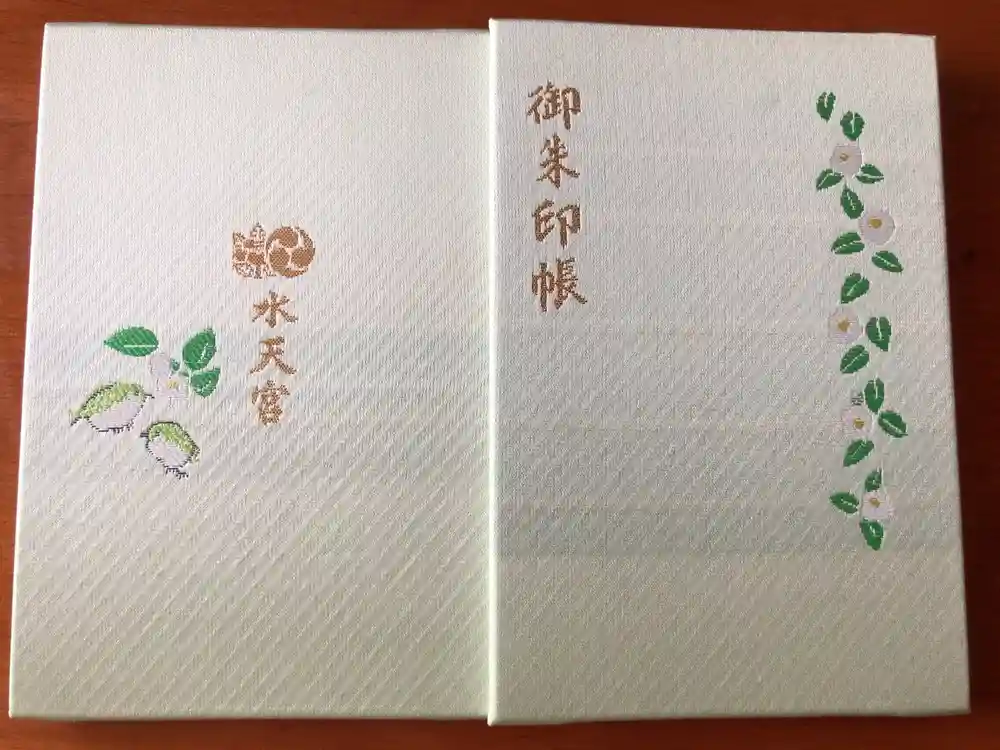 御朱印帳
水天宮